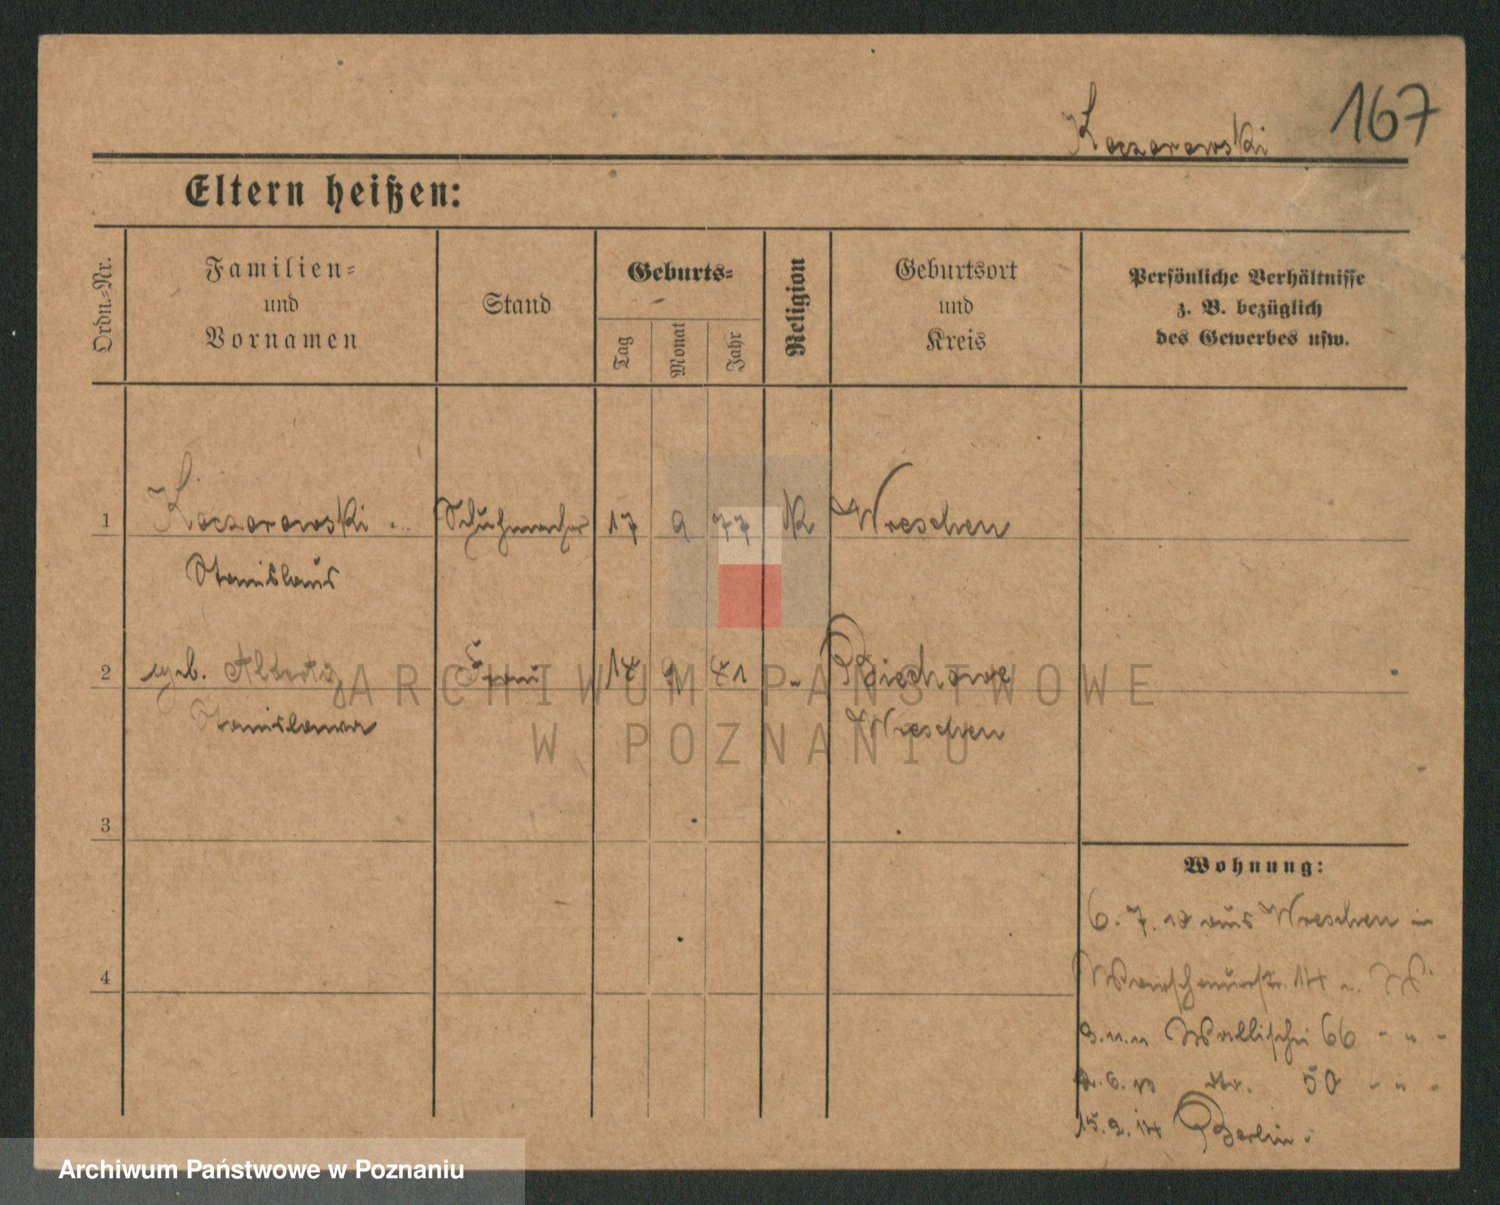 167
Kaczorowski
Eltern heißen:
Ordn.-Nr.
Familien-
und
Vornamen
Stand
Geburts-
Tag
Monat
Jahr
Religion
Geburtsort
und
Kreis
Persönliche Verhältnisse
z. B. bezüglich
des Gewerbes usw.
1 Kaczorowski Schuhmacher 17 9 77 K Wreschen
Stanislaus
2 geb. Frau 14 81 " Biechowo
Stanislawa Wreschen
3
4
Wohnung:
6. 7. aus Wreschen in
14
Wallischei 66 " " "
50 " " "
15. 2. 14 Berlin.
ARCHIWUM PAŃSTWOWE
W POZNANIU
Archiwum Państwowe w Poznaniu